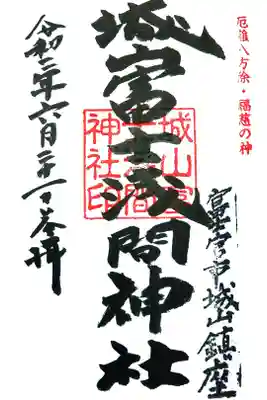 厄難八方除・福慈の神
富士宮市城山鎮座
城山富士浅間神社
城山富
士浅間
神社印
令和三年六月二十一日参拝